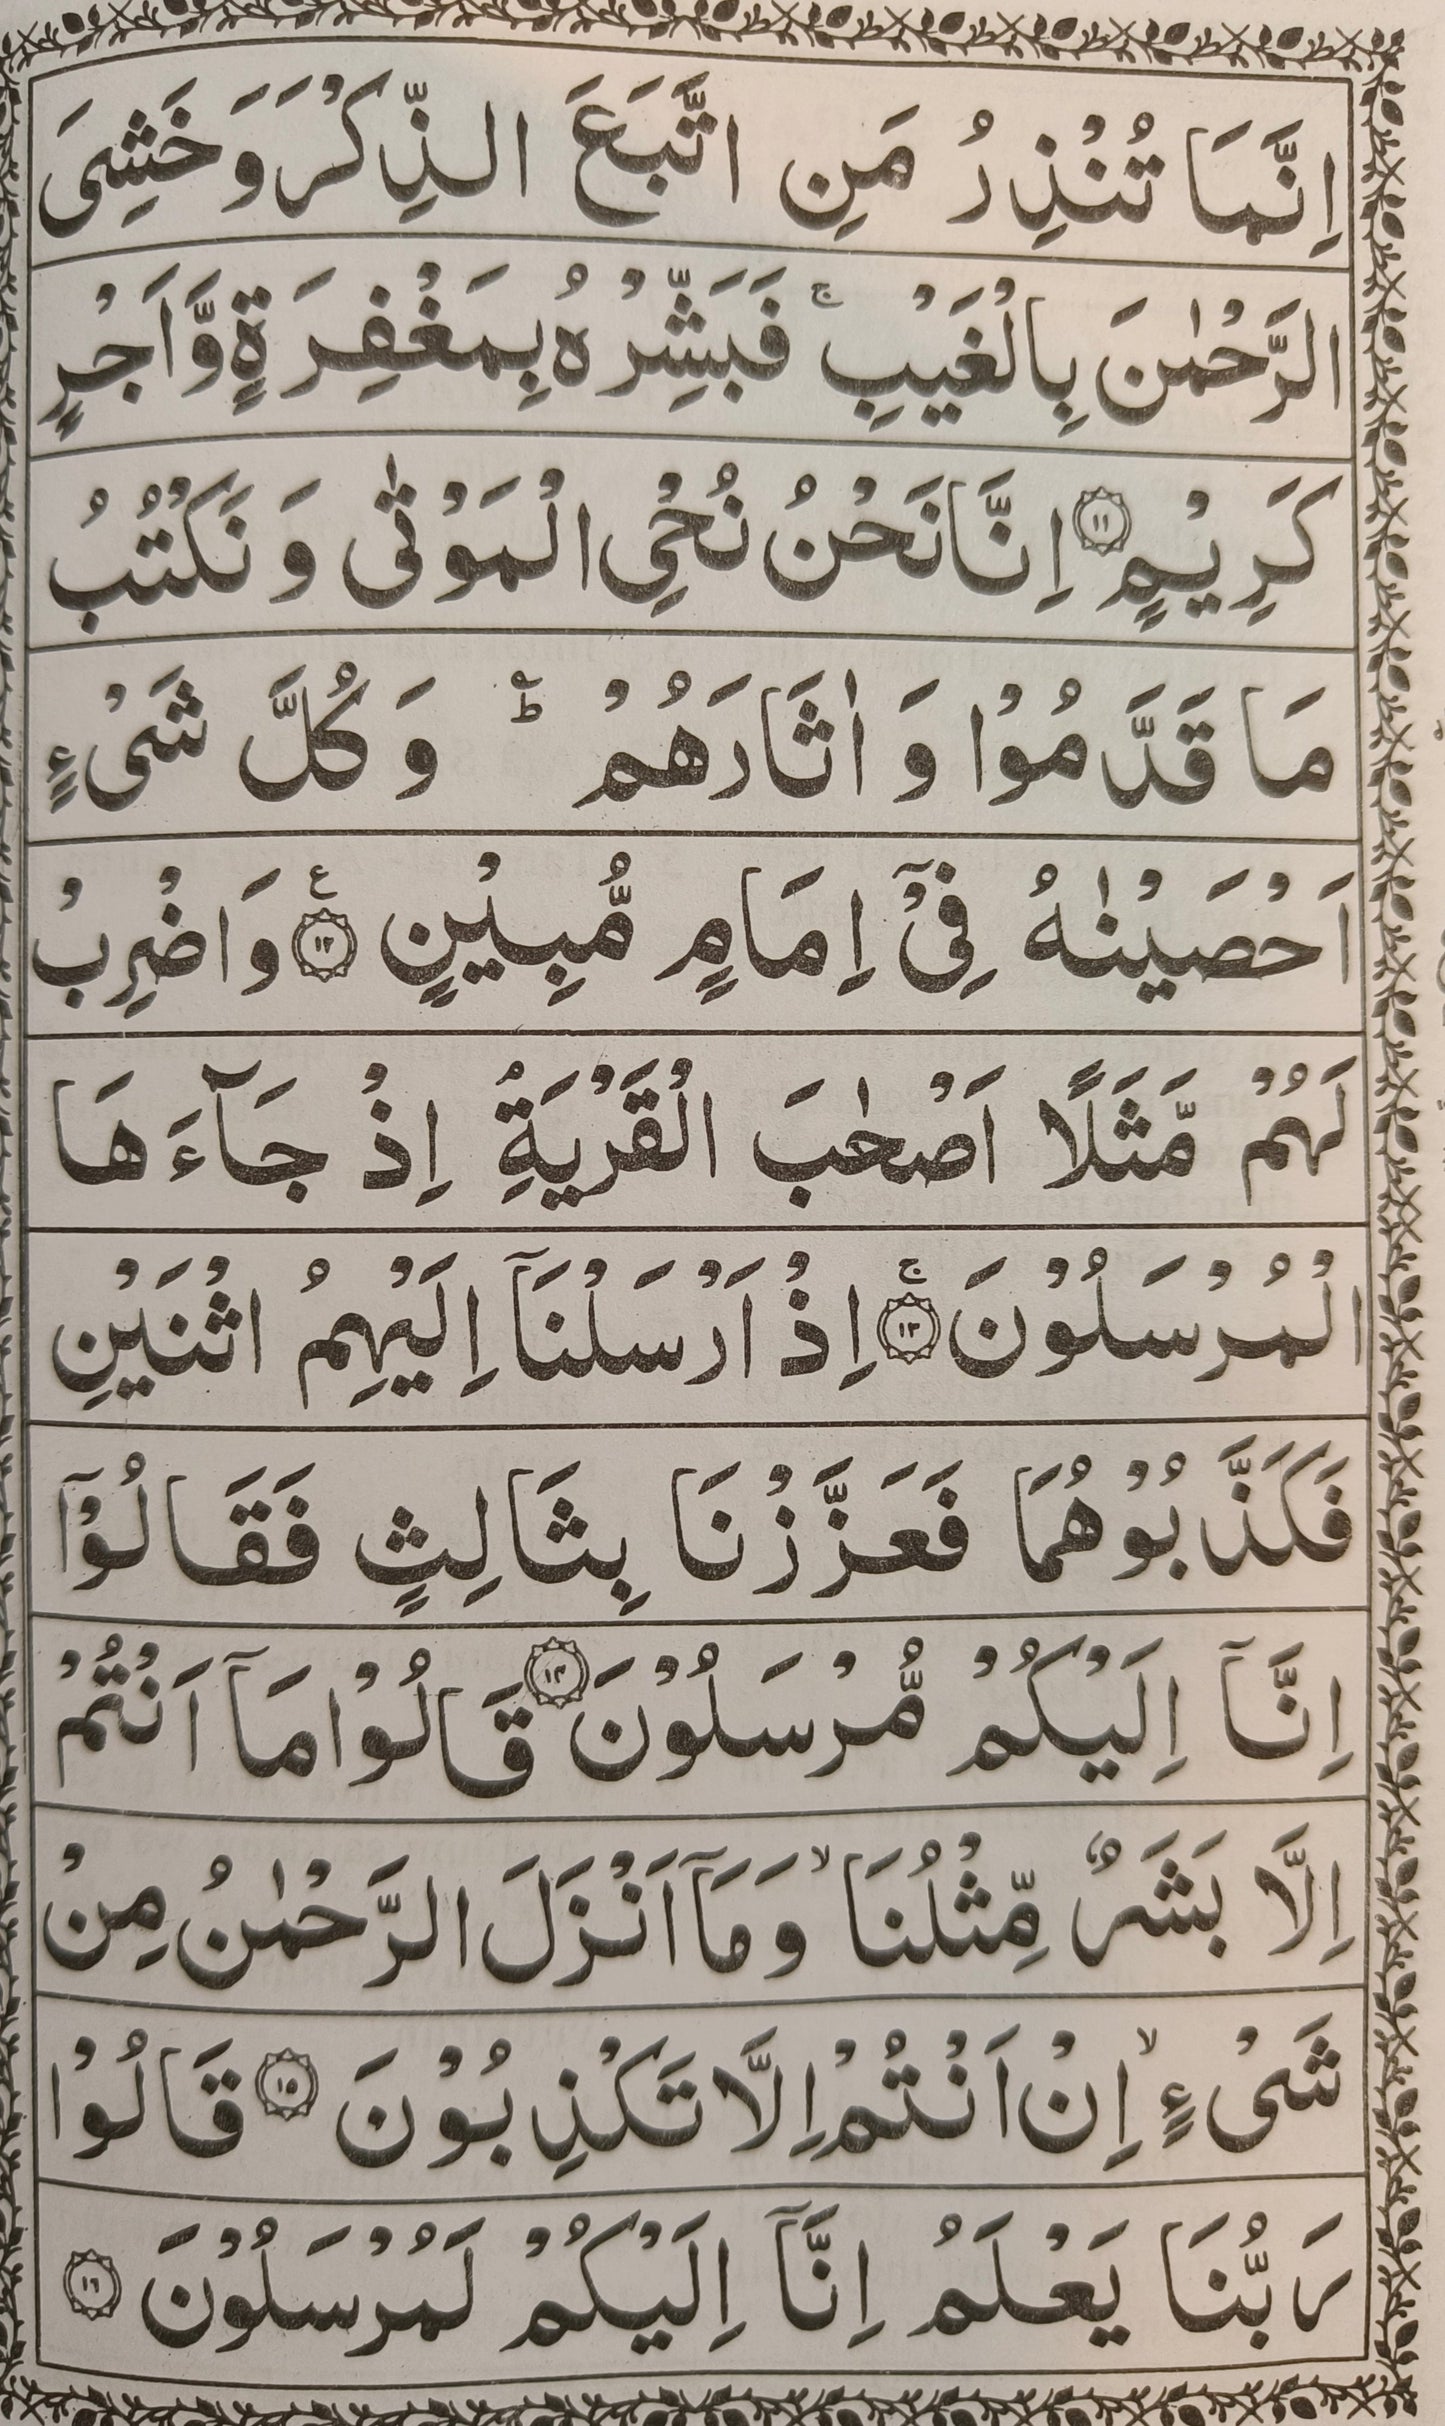 اِنَّمَا تُنْذِرُ مَنِ اتَّبَعَ الذِّكْرَ وَ خَشِیَ
الرَّحْمٰنَ بِالْغَیْبِ ۚ فَبَشِّرْهُ بِمَغْفِرَةٍ وَّ اَجْرٍ
كَرِیْمٍ ۝۱۱ اِنَّا نَحْنُ نُحْیِ الْمَوْتٰی وَ نَكْتُبُ
مَا قَدَّمُوْا وَ اٰثَارَهُمْ ؕ وَ كُلَّ شَیْءٍ
اَحْصَیْنٰهُ فِیْۤ اِمَامٍ مُّبِیْنٍ ۝۱۲ ع وَ اضْرِبْ
لَهُمْ مَّثَلًا اَصْحٰبَ الْقَرْیَةِ ۘ اِذْ جَآءَهَا
الْمُرْسَلُوْنَ ۝۱۳ ۚ اِذْ اَرْسَلْنَاۤ اِلَیْهِمُ اثْنَیْنِ
فَكَذَّبُوْهُمَا فَعَزَّزْنَا بِثَالِثٍ فَقَالُوْۤا
اِنَّاۤ اِلَیْكُمْ مُّرْسَلُوْنَ ۝۱۴ قَالُوْا مَاۤ اَنْتُمْ
اِلَّا بَشَرٌ مِّثْلُنَا ۙ وَ مَاۤ اَنْزَلَ الرَّحْمٰنُ مِنْ
شَیْءٍ ۙ اِنْ اَنْتُمْ اِلَّا تَكْذِبُوْنَ ۝۱۵ قَالُوْا
رَبُّنَا یَعْلَمُ اِنَّاۤ اِلَیْكُمْ لَمُرْسَلُوْنَ ۝۱۶